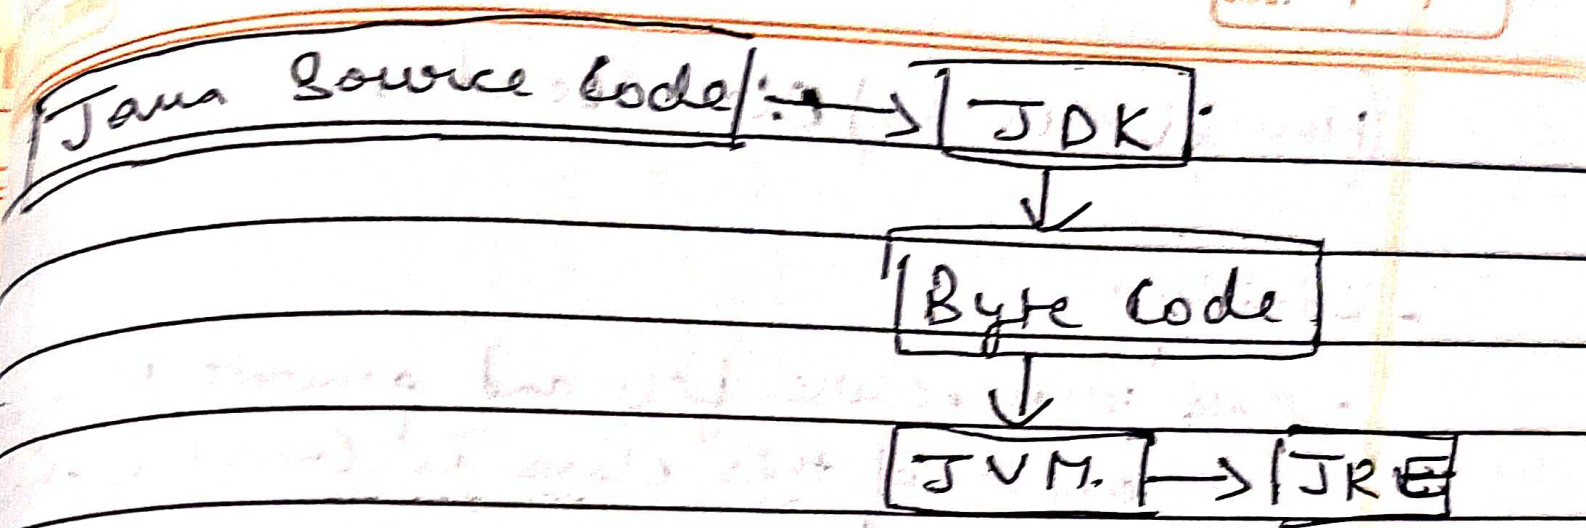 Java Source Code → JDK
Byte Code
JVM. → JRE